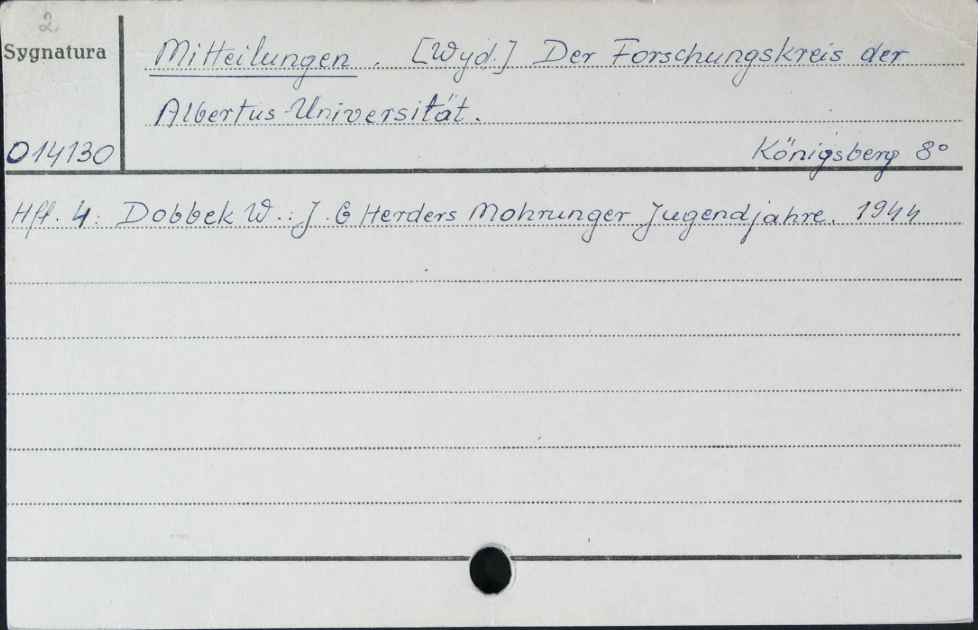 2
Sygnatura
Mitteilungen. [Wyd.] Der Forschungskreis der
Albertus-Universität.
014130
Königsberg 8°
Hft. 4: Dobbek W.: J. G Herders Mohrunger Jugendjahre. 1944